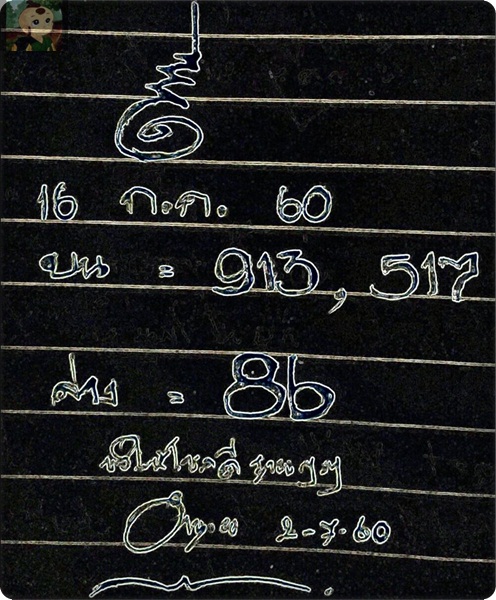 16 ก.ค. 60
บน = 913, 517
ล่าง = 86
ขอให้โชคดี
2-7-60